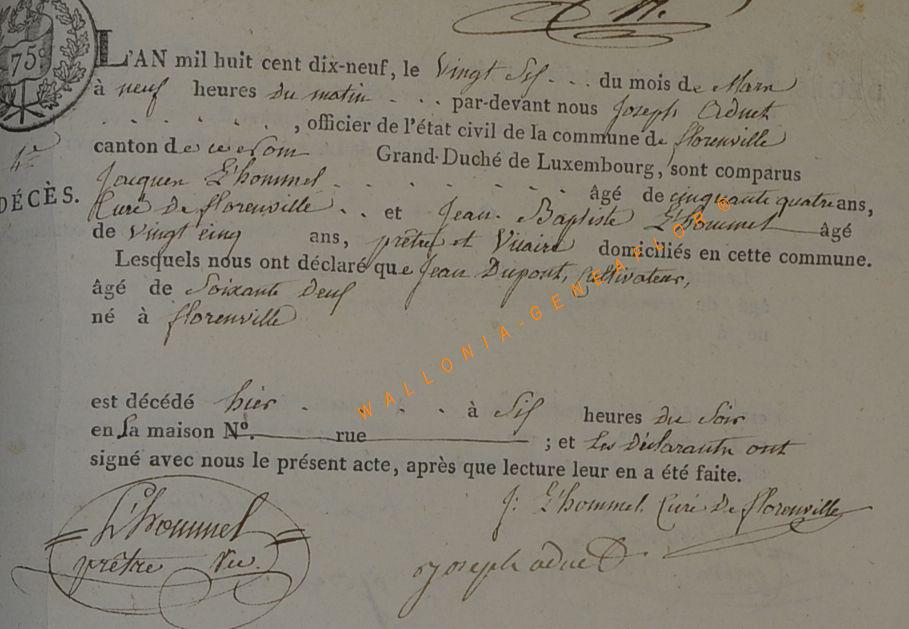 N.
75c
L'AN mil huit cent dix-neuf, le Vingt Six . . . du mois de Mars
à neuf heures du matin . . . par-devant nous Joseph Aduet
. . . . . . , officier de l'état civil de la commune de florenville
canton de ce nom Grand-Duché de Luxembourg, sont comparus
Jacques L'hommel . . . . . . . âgé de cinquante quatre ans,
Curé de florenville . . et Jean Baptiste L'hommel âgé
de Vingt cinq ans, prêtre et Vicaire domiciliés en cette commune.
Lesquels nous ont déclaré que Jean Dupont, Cultivateur,
âgé de Soixante Deux
né à florenville
est décédé hier . . . . à Six heures du Soir
en Sa maison No. rue ; et Les Déclarants ont
signé avec nous le présent acte, après que lecture leur en a été faite.
4e
DÉCÈS.
J: L'hommel Curé De florenville
L'hommel
prêtre Vic.
joseph aduet
WALLONIA-GENEAFLOR ©